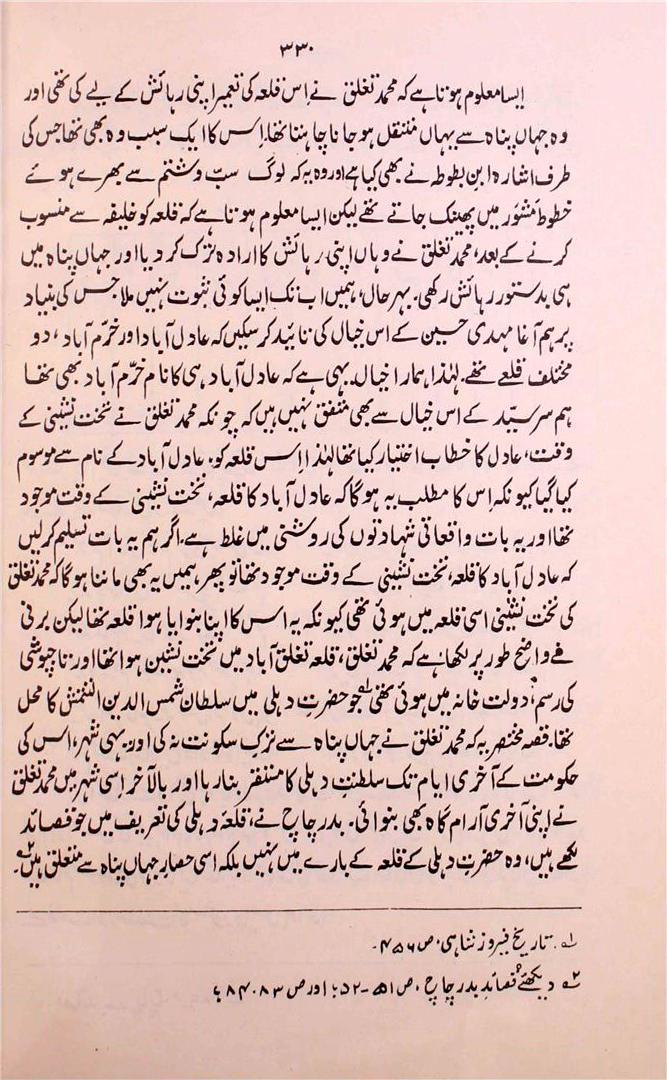 ۳۳۰
ایسا معلوم ہوتا ہے کہ محمد تغلق نے اِس قلعہ کی تعمیر اپنی رہائش کے لیے کی تھی اور
وہ جہاں پناہ سے یہاں منتقل ہو جانا چاہتا تھا۔ اِس کا ایک سبب وہ بھی تھا جس کی
طرف اشارہ ابن بطوطہ نے بھی کیا ہے اور وہ یہ کہ لوگ سبّ و شتم سے بھرے ہوئے
خطوط مَشوَر میں پھینک جاتے تھے لیکن ایسا معلوم ہوتا ہے کہ قلعہ کو خلیفہ سے منسوب
کرنے کے بعد، محمد تغلق نے وہاں اپنی رہائش کا ارادہ ترک کر دیا اور جہاں پناہ میں
ہی بدستور رہائش رکھی۔ بہرحال، ہمیں اب تک ایسا کوئی ثبوت نہیں ملا جس کی بنیاد
پر ہم آغا مہدی حسین کے اس خیال کی تائید کر سکیں کہ عادل آباد اور خرّم آباد، دو
مختلف قلعے تھے۔ لہٰذا ہمارا خیال یہی ہے کہ عادل آباد ہی کا نام خرّم آباد بھی تھا
ہم سر سیّد کے اس خیال سے بھی متفق نہیں ہیں کہ چونکہ محمد تغلق نے تخت نشینی کے
وقت، عادل کا خطاب اختیار کیا تھا لہٰذا اِس قلعہ کو، عادل آباد کے نام سے موسوم
کیا گیا کیونکہ اس کا مطلب یہ ہوگا کہ عادل آباد کا قلعہ، تخت نشینی کے وقت موجود
تھا اور یہ بات واقعاتی شہادتوں کی روشنی میں غلط ہے۔ اگر ہم یہ بات تسلیم کرلیں
کہ عادل آباد کا قلعہ، تخت نشینی کے وقت موجود تھا تو پھر، ہمیں یہ بھی ماننا ہوگا کہ محمد تغلق
کی تخت نشینی اسی قلعہ میں ہوئی تھی کیونکہ یہ اس کا اپنا بنوایا ہوا قلعہ تھا لیکن برنی
نے واضح طور پر لکھا ہے کہ محمد تغلق، قلعہ تغلق آباد میں تخت نشین ہوا تھا اور تاجپوشی
کی رسم، دولت خانہ میں ہوئی تھی؂۱ جو حضرتِ دہلی میں سلطان شمس الدین التمش کا محل
تھا۔ قصہ مختصر یہ کہ محمد تغلق نے جہاں پناہ سے ترکِ سکونت نہ کی اور یہی شہر، اس کی
حکومت کے آخری ایام تک سلطنتِ دہلی کا مستقر بنا رہا اور بالآخر اِسی شہر میں محمد تغلق
نے اپنی آخری آرام گاہ بھی بنوائی۔ بدر چاچ نے، قلعۂ دہلی کی تعریف میں جو قصائد
لکھے ہیں، وہ حضرتِ دہلی کے قلعہ کے بارے میں نہیں بلکہ اسی حصارِ جہاں پناہ سے متعلق ہیں؂۲۔
؂۱ تاریخ فیروز شاہی، ص ۴۵۶۔
؂۲ دیکھئے قصائدِ بدر چاچ، ص ۵۱-۵۲؛ اور ص ۸۳، ۸۴؛